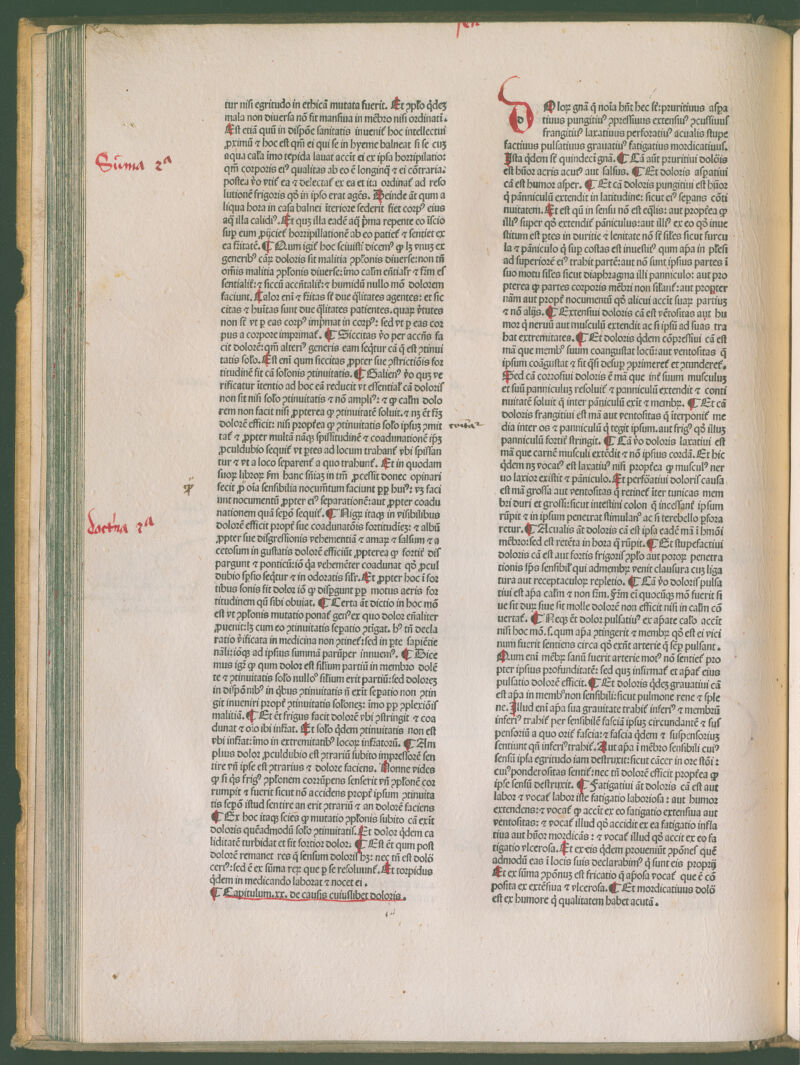 Sūma 2ª
Doctrīa 2ª
tur niſi egritudo in ethicā mutata fuerit. Et ꝯplo q̄deȝ
mala non diuerſa nō fit manſiua in mēbro niſi ordinati.
Eſt etiā qm̄ in diſpōe ſanitatis inueniť hoc intellectui
ꝓximū ⁊ hoc eſt qm̄ ei qui ſe in hyeme balneat ſi ſe cuȝ
aqua calīa īmo tepida lauat accīt ei ex ipſa horripilatio:
qm̄ corporis eiꝰ qualitas ab eo ē longinq̄ ⁊ ei cōtraria:
poſtea v̄o vtiť ea ⁊ delectať ex ea et ita ordinať ad reſo
lutionē frigoris qd̓ in ipſo erat agēs. Deinde āt qum a
liqua hora in caſa balnei īteriore ſederit fiet corpꝰ eius
aq̄ illa calidiꝰ. Et quȝ illa eadē aq̄ p̄ma repente eo īſcio
ſup eum ꝓijcieť horripillationē ab eo patieť ⁊ ſentiet ex
ea frītatē. ¶ Qum igiť hoc ſciuiſti dicemꝰ ꝙ lȝ vnuȝ ex
generibꝰ cārȝ doloris ſit malitia ꝯplonis diuerſe: non tn̄
om̄is malitia ꝯplonis diuerſe: īmo calm̄ eńtialr̄ ⁊ frm̄ eſ
ſentialit̓: ⁊ ſiccū accn̄talit̓: ⁊ humidū nullo mō dolorem
faciunt. Calor enī ⁊ frītas ſē due q̄litates agentes: et ſic
citas ⁊ hūitas ſunt due q̄litates patientes. quaꝝ v̓tutes
non ſē vt ꝑ eas corpꝰ īmp̄mat in corpꝰ: ſed vt ꝑ eas cor
pus a corpore imprimať. ¶ Siccitas v̓o per accn̄s fa
cit dolorē: qm̄ alteriꝰ generis eam ſeq̄tur cā q̄ eſt ꝯtinui
tatis ſolo. Eſt enī qum ſiccitas ꝓpter ſue ꝯſtrictiōis for
titudinē fit cā ſolonis ꝯtinuitatis. ¶ Galienꝰ v̓o quȝ ve
rificatur ītentio ad hoc eā reducit vt eſſentiał cā doloris
non ſit niſi ſolo ꝯtinuitatis ⁊ nō ampliꝰ: ⁊ ꝙ calm̄ dolo
rem non facit niſi ꝓpterea ꝙ ꝯtinuitatē ſoluit. ⁊ nȝ ēt fȝ
dolorē efficit: niſi ꝓpľea ꝙ ꝯtinuitatis ſolo ipſuȝ ꝯmit
tať ⁊ ꝓpter multā nāqȝ ſpiſſitudinē ⁊ coadunationē ip̄ȝ
ꝓculdubio ſequiť vt ꝑtes ad locum trahanť vbi ſpiſſan
tur ⁊ vt a loco ſeparenť a quo trahunť. Et in quodam
ſuoꝝ libroꝝ ẜm hanc ſn̄iaȝ in tm̄ ꝓceſſit donec opinari
fecit ꝙ oīa ſenſibilia nocum̄tum faciunt ꝓp huiꝰ: vȝ faci
unt nocumentū ꝓpter eiꝰ ſeparationē: aut ꝓpter coadu
nationem quā ſepō ſequiť. ¶ Nigȝ itaqȝ in viſibilibus
dolorē efficit propť ſue coadunatiōis fortitudiēȝ: ⁊ albū
ꝓpter ſue diſgreſſionis vehementiā ⁊ amaꝝ ⁊ ſalſum ⁊ a
cetoſum in guſtatis dolorē efficiūt ꝓpterea ꝙ fortiť diſ
pargunt ⁊ ponticū: iō q̄a vehemēter coadunat qd̓ ꝓcul
dubio ſpſio ſeq̄tur ⁊ in odoratis ſilr̄. Et ꝓpter hoc ī for
tibus ſonis fit dolor iō ꝙ diſpgunt ꝓp motus aeris for
titudinem qū ſibi obuiat. ¶ Certa āt dictio in hoc mō
eſt vt ꝯplonis mutatio ponať genꝰ ex quo dolor en̄aliter
ꝓueniť: lȝ cum eo ꝯtinuitatis ſepatio ꝯtigať. hꝰ tn̄ decla
ratio v̓ificata in medicina non ꝯtineť: ſed in ꝑte ſapiētie
nāli: iōqȝ ad ipſius ſummā parūper innuemꝰ. ¶ Dice
mus igiť ꝙ qum dolor eſt ſiſium partiū in membro dolē
te ⁊ ꝯtinuitatis ſolo nulloꝰ ſiſium erit partiū: ſed doloreȝ
in diſpōnibꝰ in q̄bus ꝯtinuitatis n̄ exīt ſepatio non ꝯtin
git inueniri propť ꝯtinuitatis ſolonez: īmo ꝓp ꝯplexiōiſ
malitiā. ¶ Et ēt frigus facit dolorē vbi ꝯſtringit ⁊ coa
dunat ⁊ oīo ibi infrīat. Et ſolo q̄dem ꝯtinuitatis non eſt
vbi infrīat: īmo in extremitatibꝰ locoꝝ infrīatorū. ¶ Am
plius dolor ꝓculdubio eſt ꝯtrariū ſubito impreſſorē ſen
tire vn̄ ipſe eſt ꝯtrarius ⁊ dolore faciens. Nonne vides
ꝙ ſi q̄s frigꝰ ꝯplonem corrūpens ſenſerit vn̄ ꝯplonē cor
rumpit ⁊ fuerit ſicut nō accidens propť ipſum ꝯtinuita
tis ſepō iſtud ſentire an erit ꝯtrariū ⁊ an dolorē faciens
¶ Ex hoc itaqȝ ſcieſ ꝙ mutatio ꝯplonis ſubito cā exīt
doloris quēadmodū ſolo ꝯtinuitatiſ. Et dolor q̄dem ca
liditatē turbidať et fit fortior dolor. ¶ Eſt ēt qum poſt
dolorē remanet res q̄ ſenſum doloris hȝ: nec tn̄ eſt dolō
certꝰ: ſed ē ex ſūma reꝝ que ꝑ ſe reſoluunť. Et torpidus
q̄dem in medicando laborat ⁊ nocet ei.
¶ Capitulum. xx. de cauſis cuiuſlibet doloris.
Oloꝝ gnā q̄ noīa hn̄t hec ſē: pruritiuus aſpa
tiuus pungitiuꝰ ꝯpreſſiuus extenſiuꝰ ꝯcuſſiuuſ
frangitiuꝰ laxatiuus perforatiuꝰ acualis ſtupe
factiuus pulſatiuus grauatiuꝰ fatigatius mordicatiuuſ.
Iſta q̄dem ſē quindeci gnā. ¶ Cā aūt pruritiui dolōis
eſt hūor acris acutꝰ aut ſalſus. ¶ Et doloris aſpatiui
cā eſt humor aſper. ¶ Et cā doloris pungitiui eſt hūor
q̄ pānniculū extendit in latitudine: ſicut eiꝰ ſepans cōti
nuitatem. ¶ Et eſt qū in ſenſu nō eſt eq̄lis: aut propľea ꝙ
illiꝰ ſuper qd̓ extendiť pāniculus: aut illiꝰ ex eo qd̓ inue
ſtitum eſt ꝑtes in duritie ⁊ lenitate nō ſē ſiſes ſicut furcu
la ⁊ pāniculo q̄ ſup coſtas eſt inueſtiꝰ qum apā in pleſi
ad ſuperiorē eiꝰ trahit partē: aut nō ſunt ipſius partes ī
ſuo motu ſiſes ſicut diaphragma illi panniculo: aut pro
pterea ꝙ partes corporis mēbri non ſiſanť: aut propter
nām aut propť nocumentū qd̓ alicui accīt ſuaꝝ partiuȝ
⁊ nō alijs. ¶ Extenſiui doloris cā eſt vētoſitas aut hu
mor q̄ neruū aut muſculū extendit ac ſi ipſū ad ſuas tra
hat extremitates. ¶ Et doloris q̄dem cōpreſſiui cā eſt
mā que membꝰ ſuum coanguſtat locū: aut ventoſitas q̄
ipſum coāguſtať ⁊ fit q̄ſi deſup ꝯprimereť et ꝯtundereť.
Sed cā corroſiui doloris ē mā que inť ſuum muſculuȝ
et ſuū panniculuȝ reſoluiť ⁊ panniculū extendit ⁊ conti
nuitatē ſoluit q̄ inter pāniculū exit ⁊ membꝝ. ¶ Et cā
doloris frangitiui eſt mā aut ventoſitas q̄ īterponiť me
dia inter os ⁊ panniculū q̄ tegit ipſum. aut frigꝰ qd̓ illuȝ
panniculū fortiť ſtringit. ¶ Cā v̓o doloris laxatiui eſt
mā que carnē muſculi extēdit ⁊ nō ipſius cordā. Et hic
q̄dem nȝ vocať eſt laxatiuꝰ niſi propľea ꝙ muſculꝰ ner
uo laxior exiſtit ⁊ pāniculo. Et perforātiui doloriſ cauſa
eſt mā groſſa aut ventoſitas q̄ retineť iter tunicas mem
bri duri et groſſi: ſicut inteſtini colon q̄ inceſſanť ipſum
rūpit ⁊ in ipſum penetrat ſtimulanſ ac ſi terebello ꝑfora
retur. ¶ Acualis āt doloris cā eſt ipſa eadē mā ī hmōi
mēbro: ſed eſt retēta in hora q̄ rūpit. ¶ Et ſtupefactiui
doloris cā eſt aut fortis frigoriſ ꝯplo aut poroꝝ penetra
tionis ſpūs ſenſibiľ qui ad membꝝ venit clauſura cuȝ liga
tura aut receptaculoꝝ repletio. ¶ Cā v̓o doloriſ pulſa
tiui eſt apā calm̄ ⁊ non frm̄. frm̄ eī quocūqȝ mō fuerit ſi
ue ſit duꝝ ſiue ſit molle dolorē non efficit niſi in calm̄ cō
uertať. ¶ Neqȝ ēt dolor pulſatiuꝰ ex apāte calo accīt
niſi hoc mō. ſ. qum apā ꝯtingerit ⁊ membꝝ qd̓ eſt ei vici
num fuerit ſentiens circa qd̓ exn̄t arterie q̄ ſꝑ pulſant.
Nam enī mēbꝝ ſanū fuerit arterie motꝰ nō ſentieť pro
pter ipſius profunditatē: ſed quȝ infirmať et apať eius
pulſatio dolorē efficit. ¶ Et doloris q̄deȝ grauatiui cā
eſt apā in membꝰ non ſenſibili: ſicut pulmone rene ⁊ ſple
ne. Illud enī apā ſua grauitate trahiť inferiꝰ ⁊ membrū
inferiꝰ trahiť per ſenſibilē faſciā ipſuȝ circundantē ⁊ ſuſ
penſoriū a quo oriť faſcia: ⁊ faſcia q̄dem ⁊ ſuſpenſoriuȝ
ſentiunt qn̄ inferiꝰ trahiť. Aut apā ī mēbro ſenſibili cuiꝰ
ſenſū ipſa egritudo iam deſtruxit: ſicut cācer in ore ſtōi:
cuiꝰ ponderoſitas ſentiť: nec tn̄ dolorē efficit propľea ꝙ
ipſe ſenſū deſtruxit. ¶ Fatigatiui āt doloris cā eſt aut
labor ⁊ vocať labor iſte fatigatio laborioſa: aut humor
extendens: ⁊ vocať ꝙ accīt ex eo fatigatio extenſiua aut
ventoſitas: ⁊ vocať illud qd̓ accidit ex ea fatigatio infla
tiua aut hūor mordicās: ⁊ vocať illud qd̓ accit ex eo fa
tigatio vlceroſa. ¶ Et ex eis q̄dem proueniūt ꝯpōneſ que̓
admodū eas ī locis ſuis declarabimꝰ q̄ ſunt eis proprij
Et ex ſūma ꝯpōnuȝ eſt fricatio q̄ apoſa vocať que ē cō
poſita ex extēſiua ⁊ vlceroſa. ¶ Et mordicatiuus dolō
eſt ex humore q̄ qualitatem habet acutā.